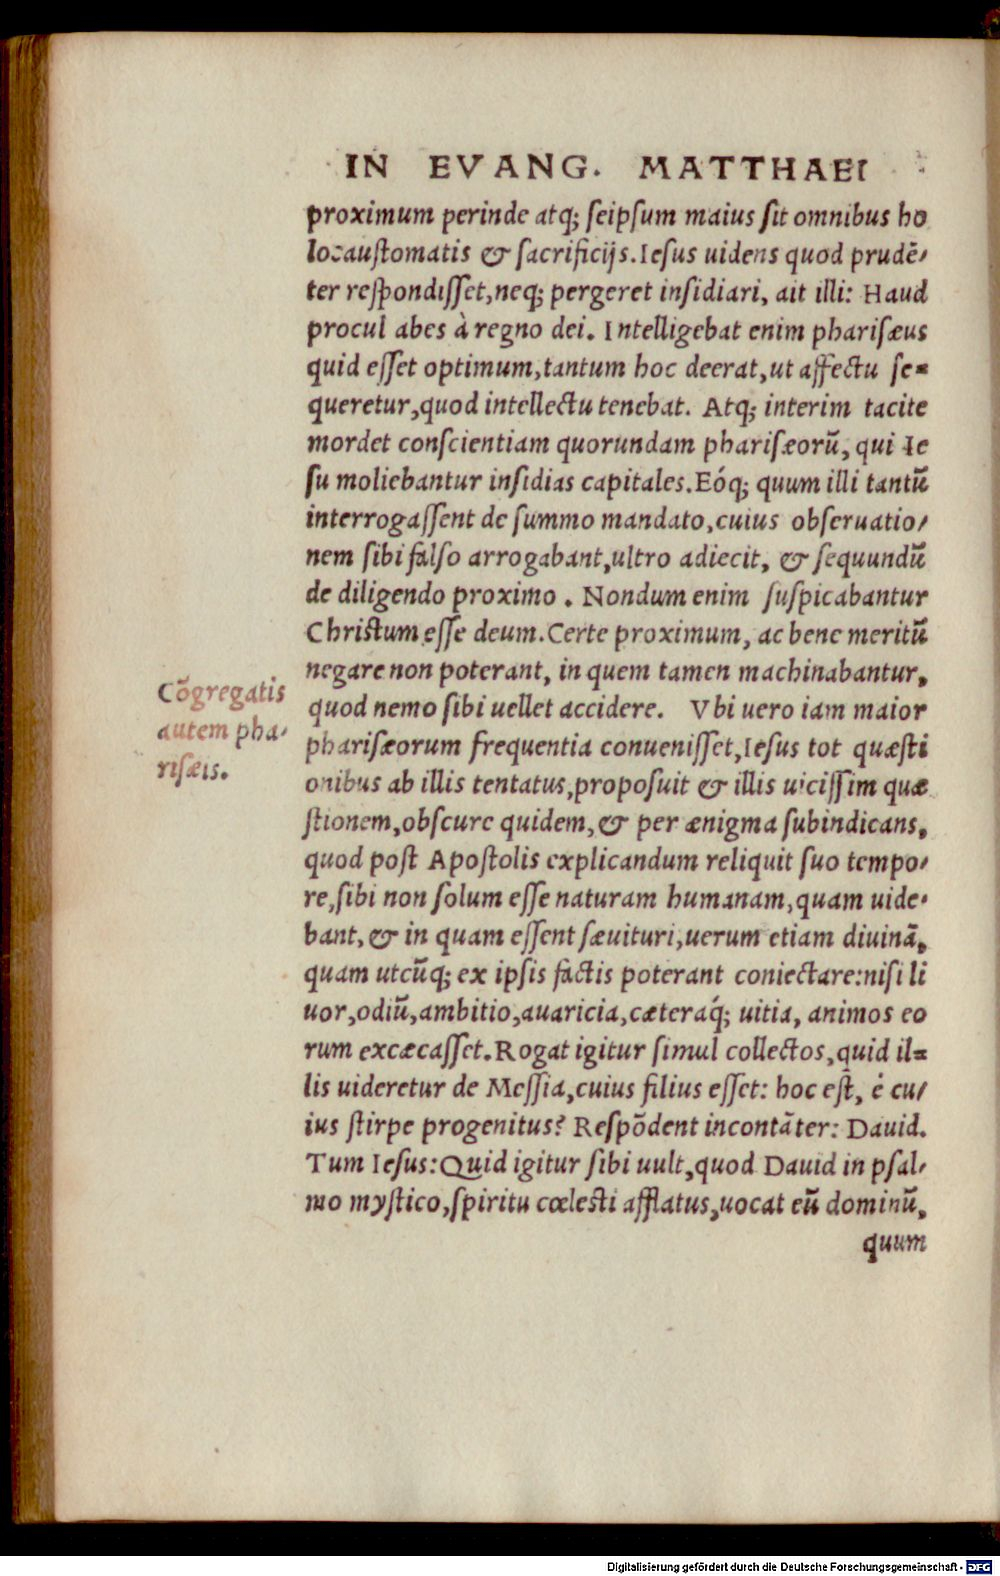 IN EVANG. MATTHAEI
proximum perinde atq; seipsum maius sit omnibus ho
locaustomatis & sacrificijs. Iesus uidens quod prudē/
ter respondisset, neq; pergeret insidiari, ait illi: Haud
procul abes à regno dei. Intelligebat enim pharisæus
quid esset optimum, tantum hoc deerat, ut affectu se=
queretur, quod intellectu tenebat. Atq; interim tacite
mordet conscientiam quorundam pharisæorũ, qui Ie
su moliebantur insidias capitales. Eóq; quum illi tantũ
interrogassent de summo mandato, cuius obseruatio/
nem sibi falso arrogabant, ultro adiecit, & sequundũ
de diligendo proximo. Nondum enim suspicabantur
Christum esse deum. Certe proximum, ac bene meritũ
negare non poterant, in quem tamen machinabantur,
Cõgregatis
autem pha/
risæis.
quod nemo sibi uellet accidere. Vbi uero iam maior
pharisæorum frequentia conuenisset, Iesus tot quæsti
onibus ab illis tentatus, proposuit & illis uicissim quæ
stionem, obscure quidem, & per ænigma subindicans,
quod post Apostolis explicandum reliquit suo tempo/
re, sibi non solum esse naturam humanam, quam uide/
bant, & in quam essent sæuituri, uerum etiam diuinã,
quam utcũq; ex ipsis factis poterant coniectare: nisi li
uor, odiũ, ambitio, auaricia, cæteraq́; uitia, animos eo
rum excæcasset. Rogat igitur simul collectos, quid il=
lis uideretur de Messia, cuius filius esset: hoc est, è cu/
ius stirpe progenitus? Respõdent incontãter: Dauid.
Tum Iesus: Quid igitur sibi uult, quod Dauid in psal/
mo mystico, spiritu cœlesti afflatus, uocat eũ dominũ,
quum
Digitalisierung gefördert durch die Deutsche Forschungsgemeinschaft - DFG